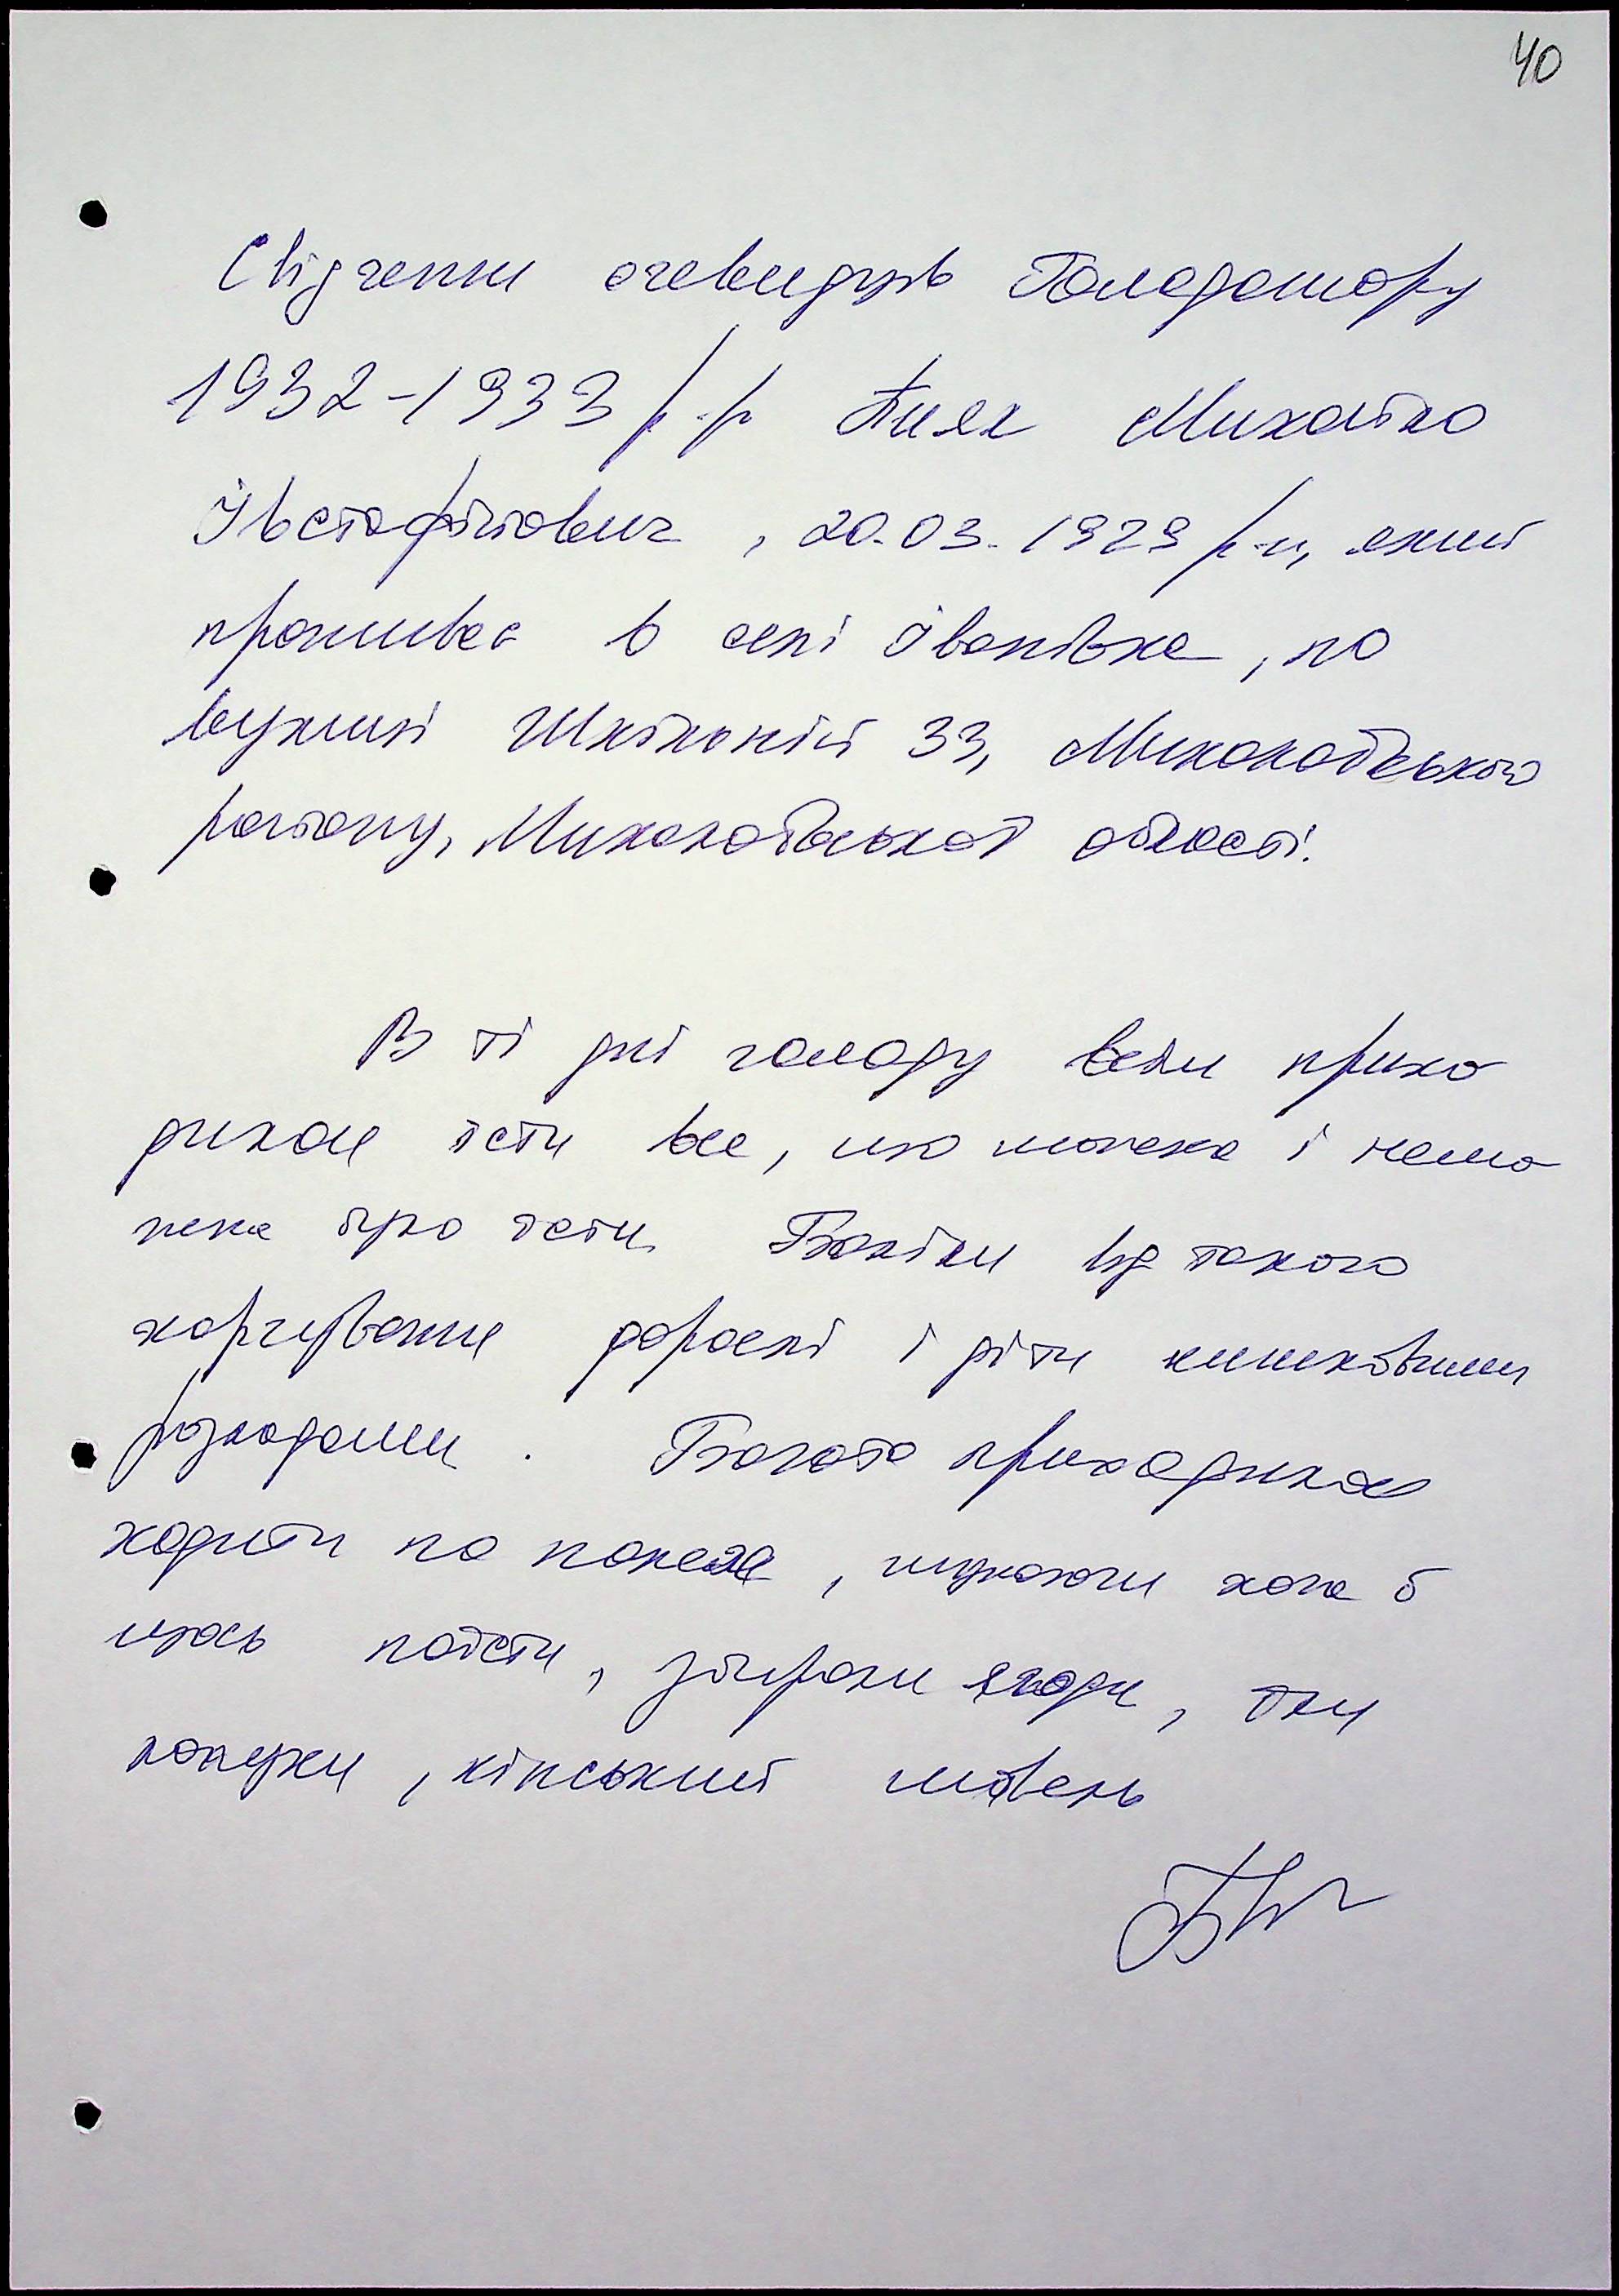 40
Свідчення очевидців Голодомору
1932-1933 р.р Михайло
Івстафійович, 20.03.1929 р.н, який
проживає в селі Іванівка, по
вулиці Шкільній 33, Миколаївського
району, Миколаївської області.
В ті дні голоду всім прихо
дилося їсти все, що можна і немо
жна було їсти Боліли від такого
харчування дорослі і діти кишковими
розладами. Багато приходилося
ходити по полях, шукаючи хоча б
щось поїсти, збирали ягоди, їли
лопухи, кінський щавель